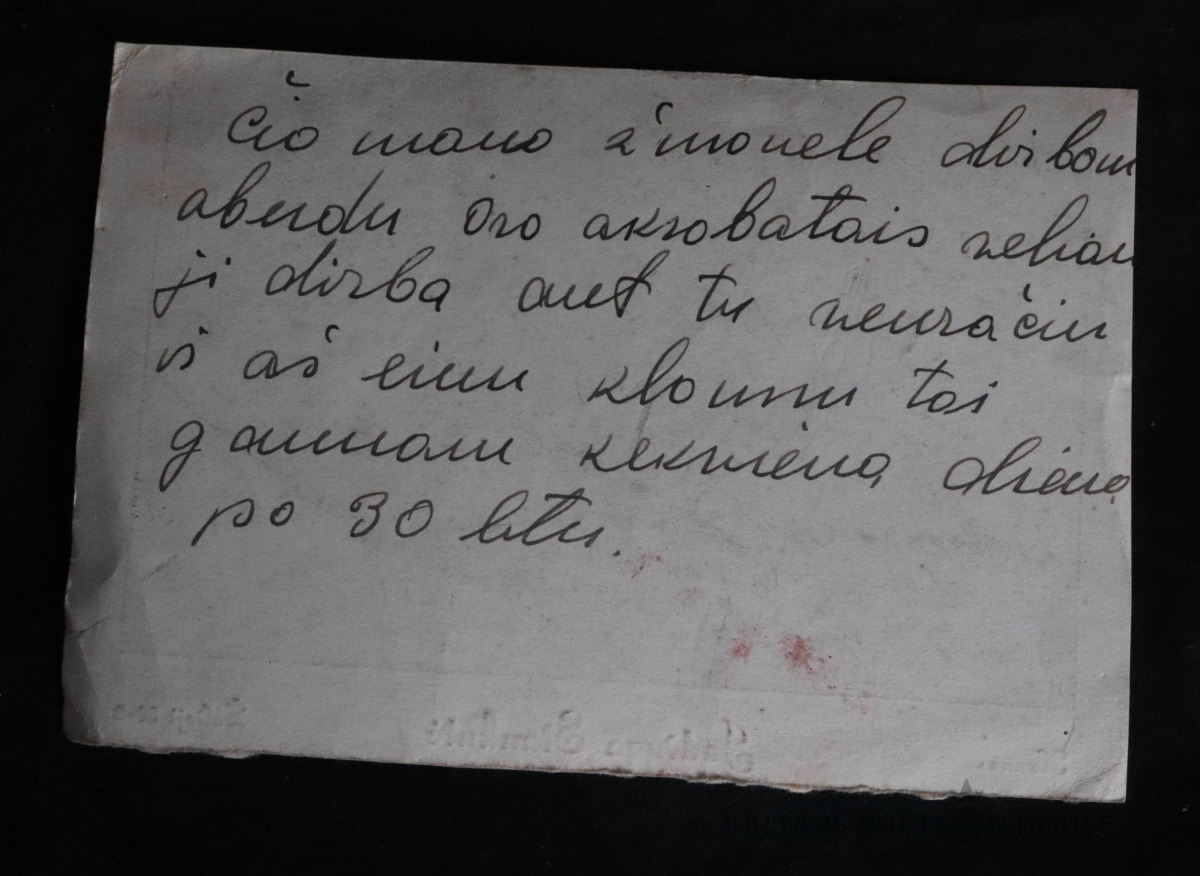 čio mano žmonele dirbom
abendu oro akrobatais
ji dirba ant tu
ir aš einu klounu tai
gaunam kekviena diena
po 30 litu.
BALTARS AUCTION HOUSE